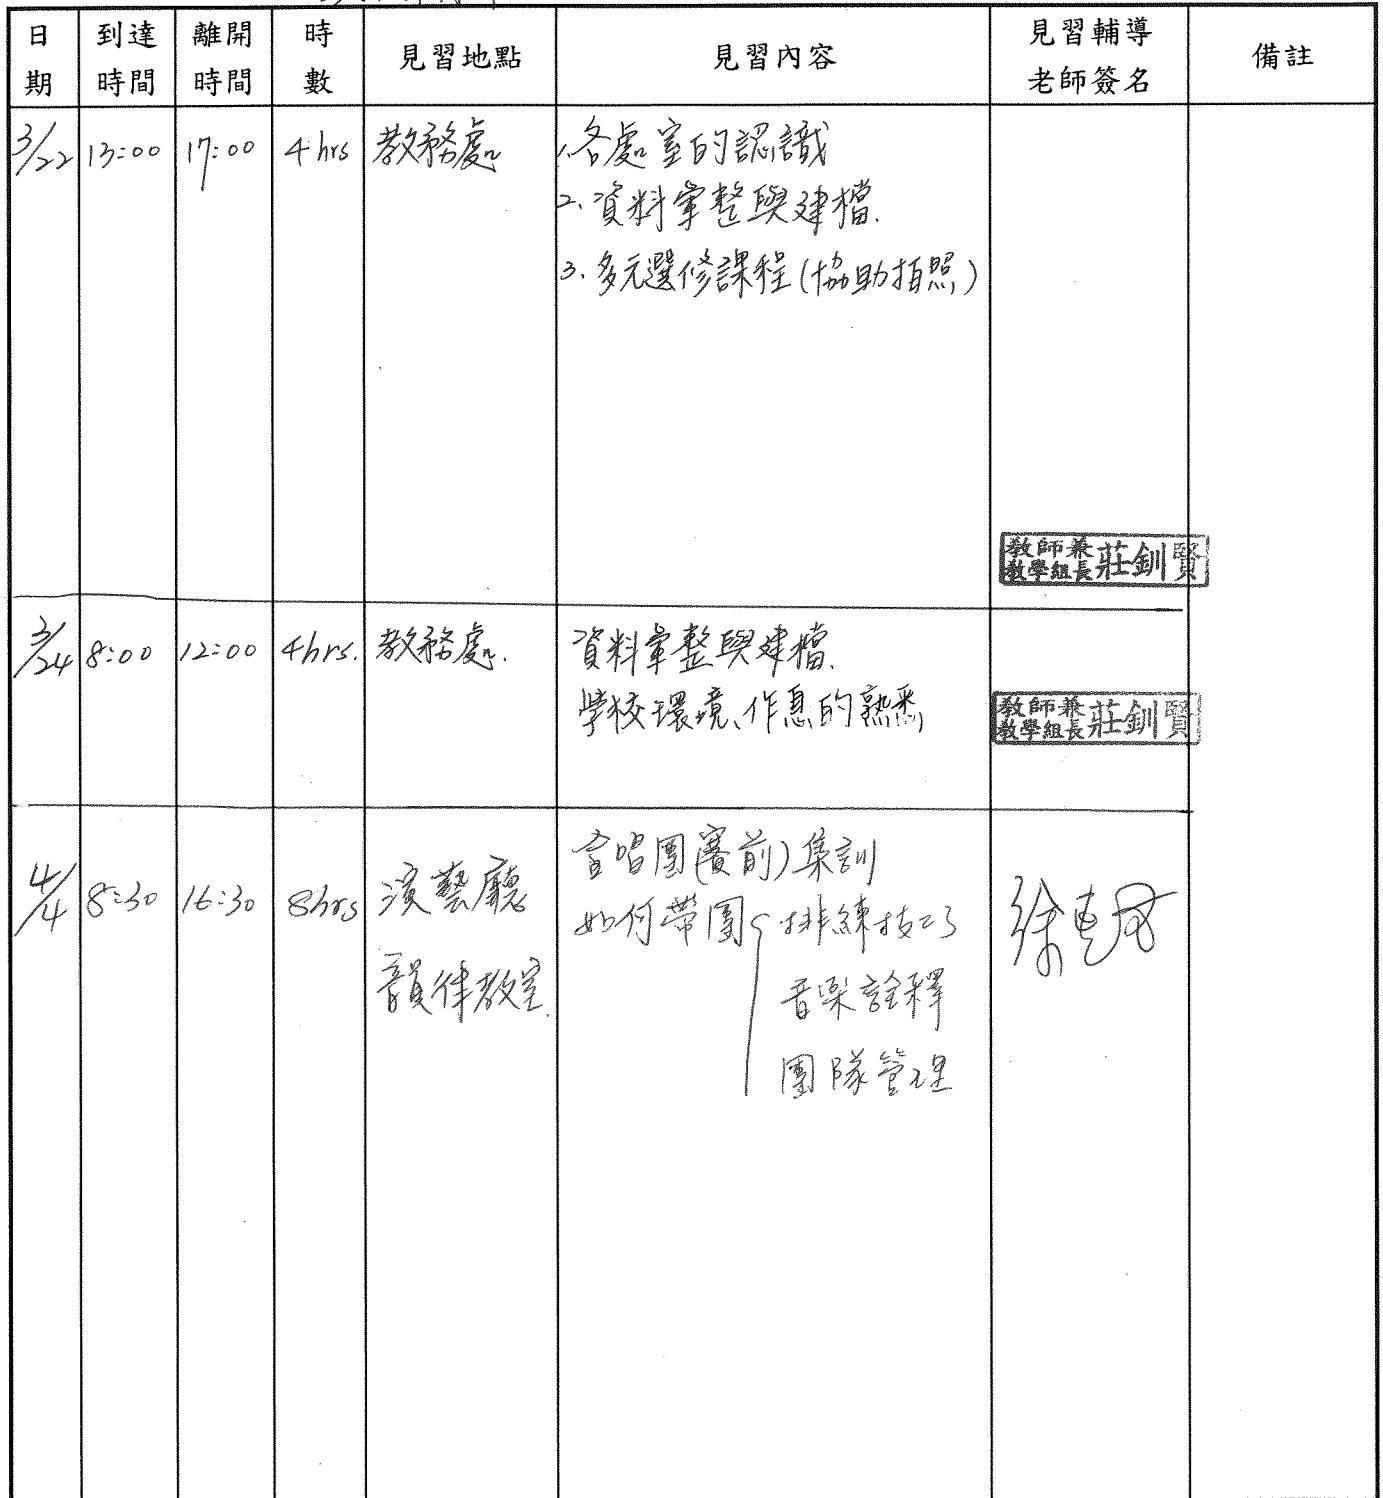 日期 到達時間 離開時間 時數 見習地點 見習內容 見習輔導老師簽名 備註
3/22 13:00 17:00 4 hrs 教務處 1. 各處室的認識
2. 資料彙整與建檔.
3. 多元選修課程(協助拍照)
教師兼教學組長 莊釧賢
3/24 8:00 12:00 4hrs. 教務處. 資料彙整與建檔.
學校環境、作息的熟悉
教師兼教學組長 莊釧賢
4/4 8:30 16:30 8hrs 演藝廳 合唱團(賽前)集訓
如何帶團 排練技巧
韻律教室. 音樂詮釋
團隊管理